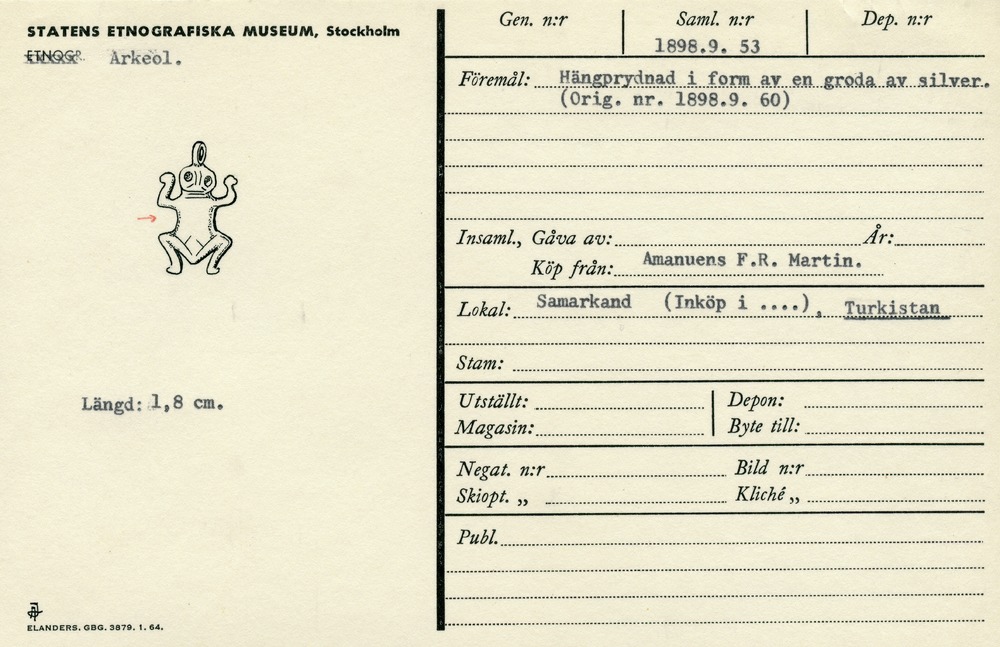 STATENS ETNOGRAFISKA MUSEUM, Stockholm
ETNOGR. Arkeol.
Längd: 1,8 cm.
ELANDERS. GBG. 3879. 1. 64.
Gen. n:r Saml. n:r Dep. n:r
1898.9. 53
Föremål: Hängprydnad i form av en groda av silver.
(Orig. nr. 1898.9. 60)
Insaml., Gåva av: År:
Köp från: Amanuens F.R. Martin.
Lokal: Samarkand (Inköp i ....), Turkistan
Stam:
Utställt: Depon:
Magasin: Byte till:
Negat. n:r Bild n:r
Skiopt. „ Kliché „
Publ.